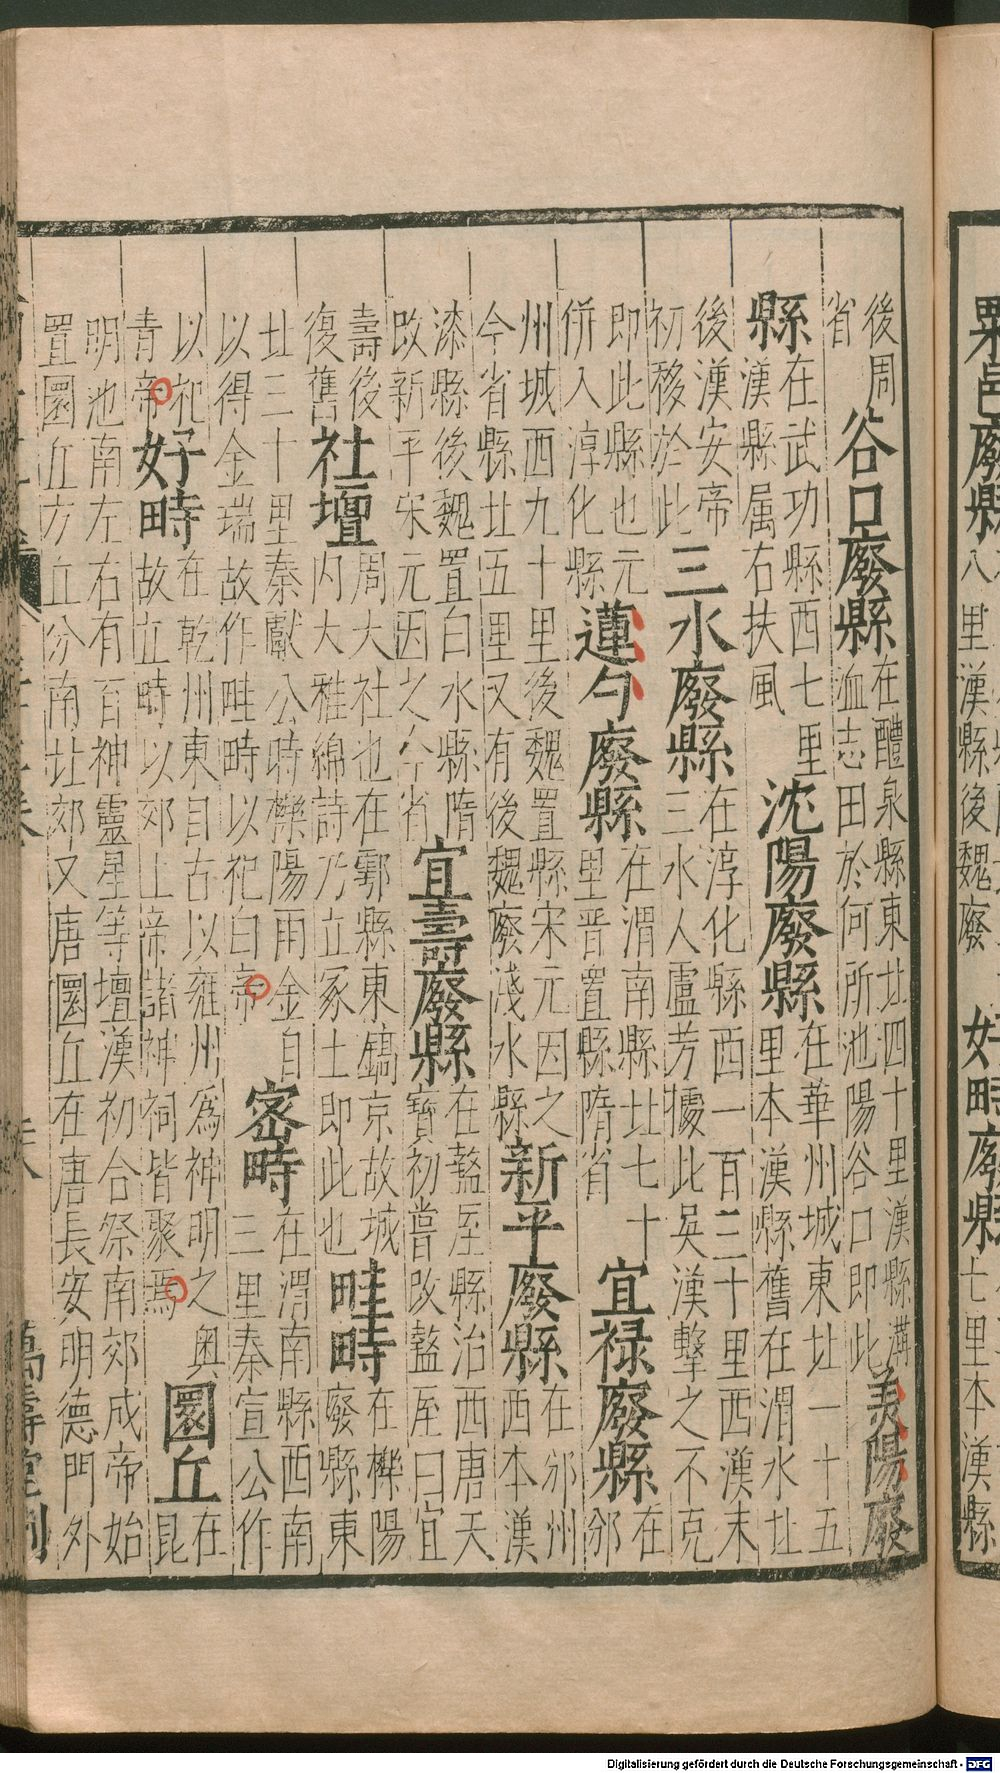 粟邑廢縣
八里漢縣後魏廢
好畤廢縣
七里本漢縣
後周省
谷口廢縣
在醴泉縣東北四十里漢縣溝
洫志田於何所池陽谷口即此
美陽廢
縣
在武功縣西七里
漢縣属右扶風
沈陽廢縣
在華州城東北一十五
里本漢縣舊在渭水北
後漢安帝
初移於此
三水廢縣
在淳化縣西一百二十里西漢末
三水人盧芳據此吳漢擊之不克
即此縣也元
併入淳化縣
蓮勺廢縣
在渭南縣北七十
里晋置縣隋省
宜禄廢縣
在邠
州城西九十里後魏置縣宋元因之
今省縣北五里又有後魏廢淺水縣
新平廢縣
在邠州
西本漢
漆縣後魏置白水縣隋
改新平宋元因之今省
宜壽廢縣
在盩厔縣治西唐天
寶初嘗改盩厔曰宜
壽後
復舊
社壇
周大社也在鄠縣東鎬京故城
内大雅綿詩乃立冢土即此也
畦畤
在櫟陽
廢縣東
北三十里秦獻公時櫟陽雨金自
以得金瑞故作畦畤以祀白帝
密畤
在渭南縣西南
三里秦宣公作
以祀
青帝
好畤
在乾州東自古以雍州爲神明之奥
故立畤以郊上帝諸神祠皆聚焉
圜丘
在
昆
明池南左右有百神靈星等壇漢初合祭南郊成帝始
置圜丘方丘分南北郊又唐圜丘在唐長安明德門外
萬壽堂刊
Digitalisierung gefördert durch die Deutsche Forschungsgemeinschaft - DFG